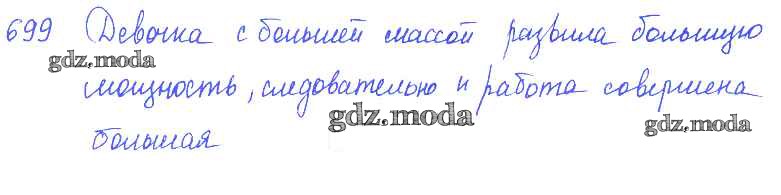 699 Девочка с большей массой развила большую
gdz.moda
мощность, следовательно и работа совершена
gdz.moda
gdz.moda
большая